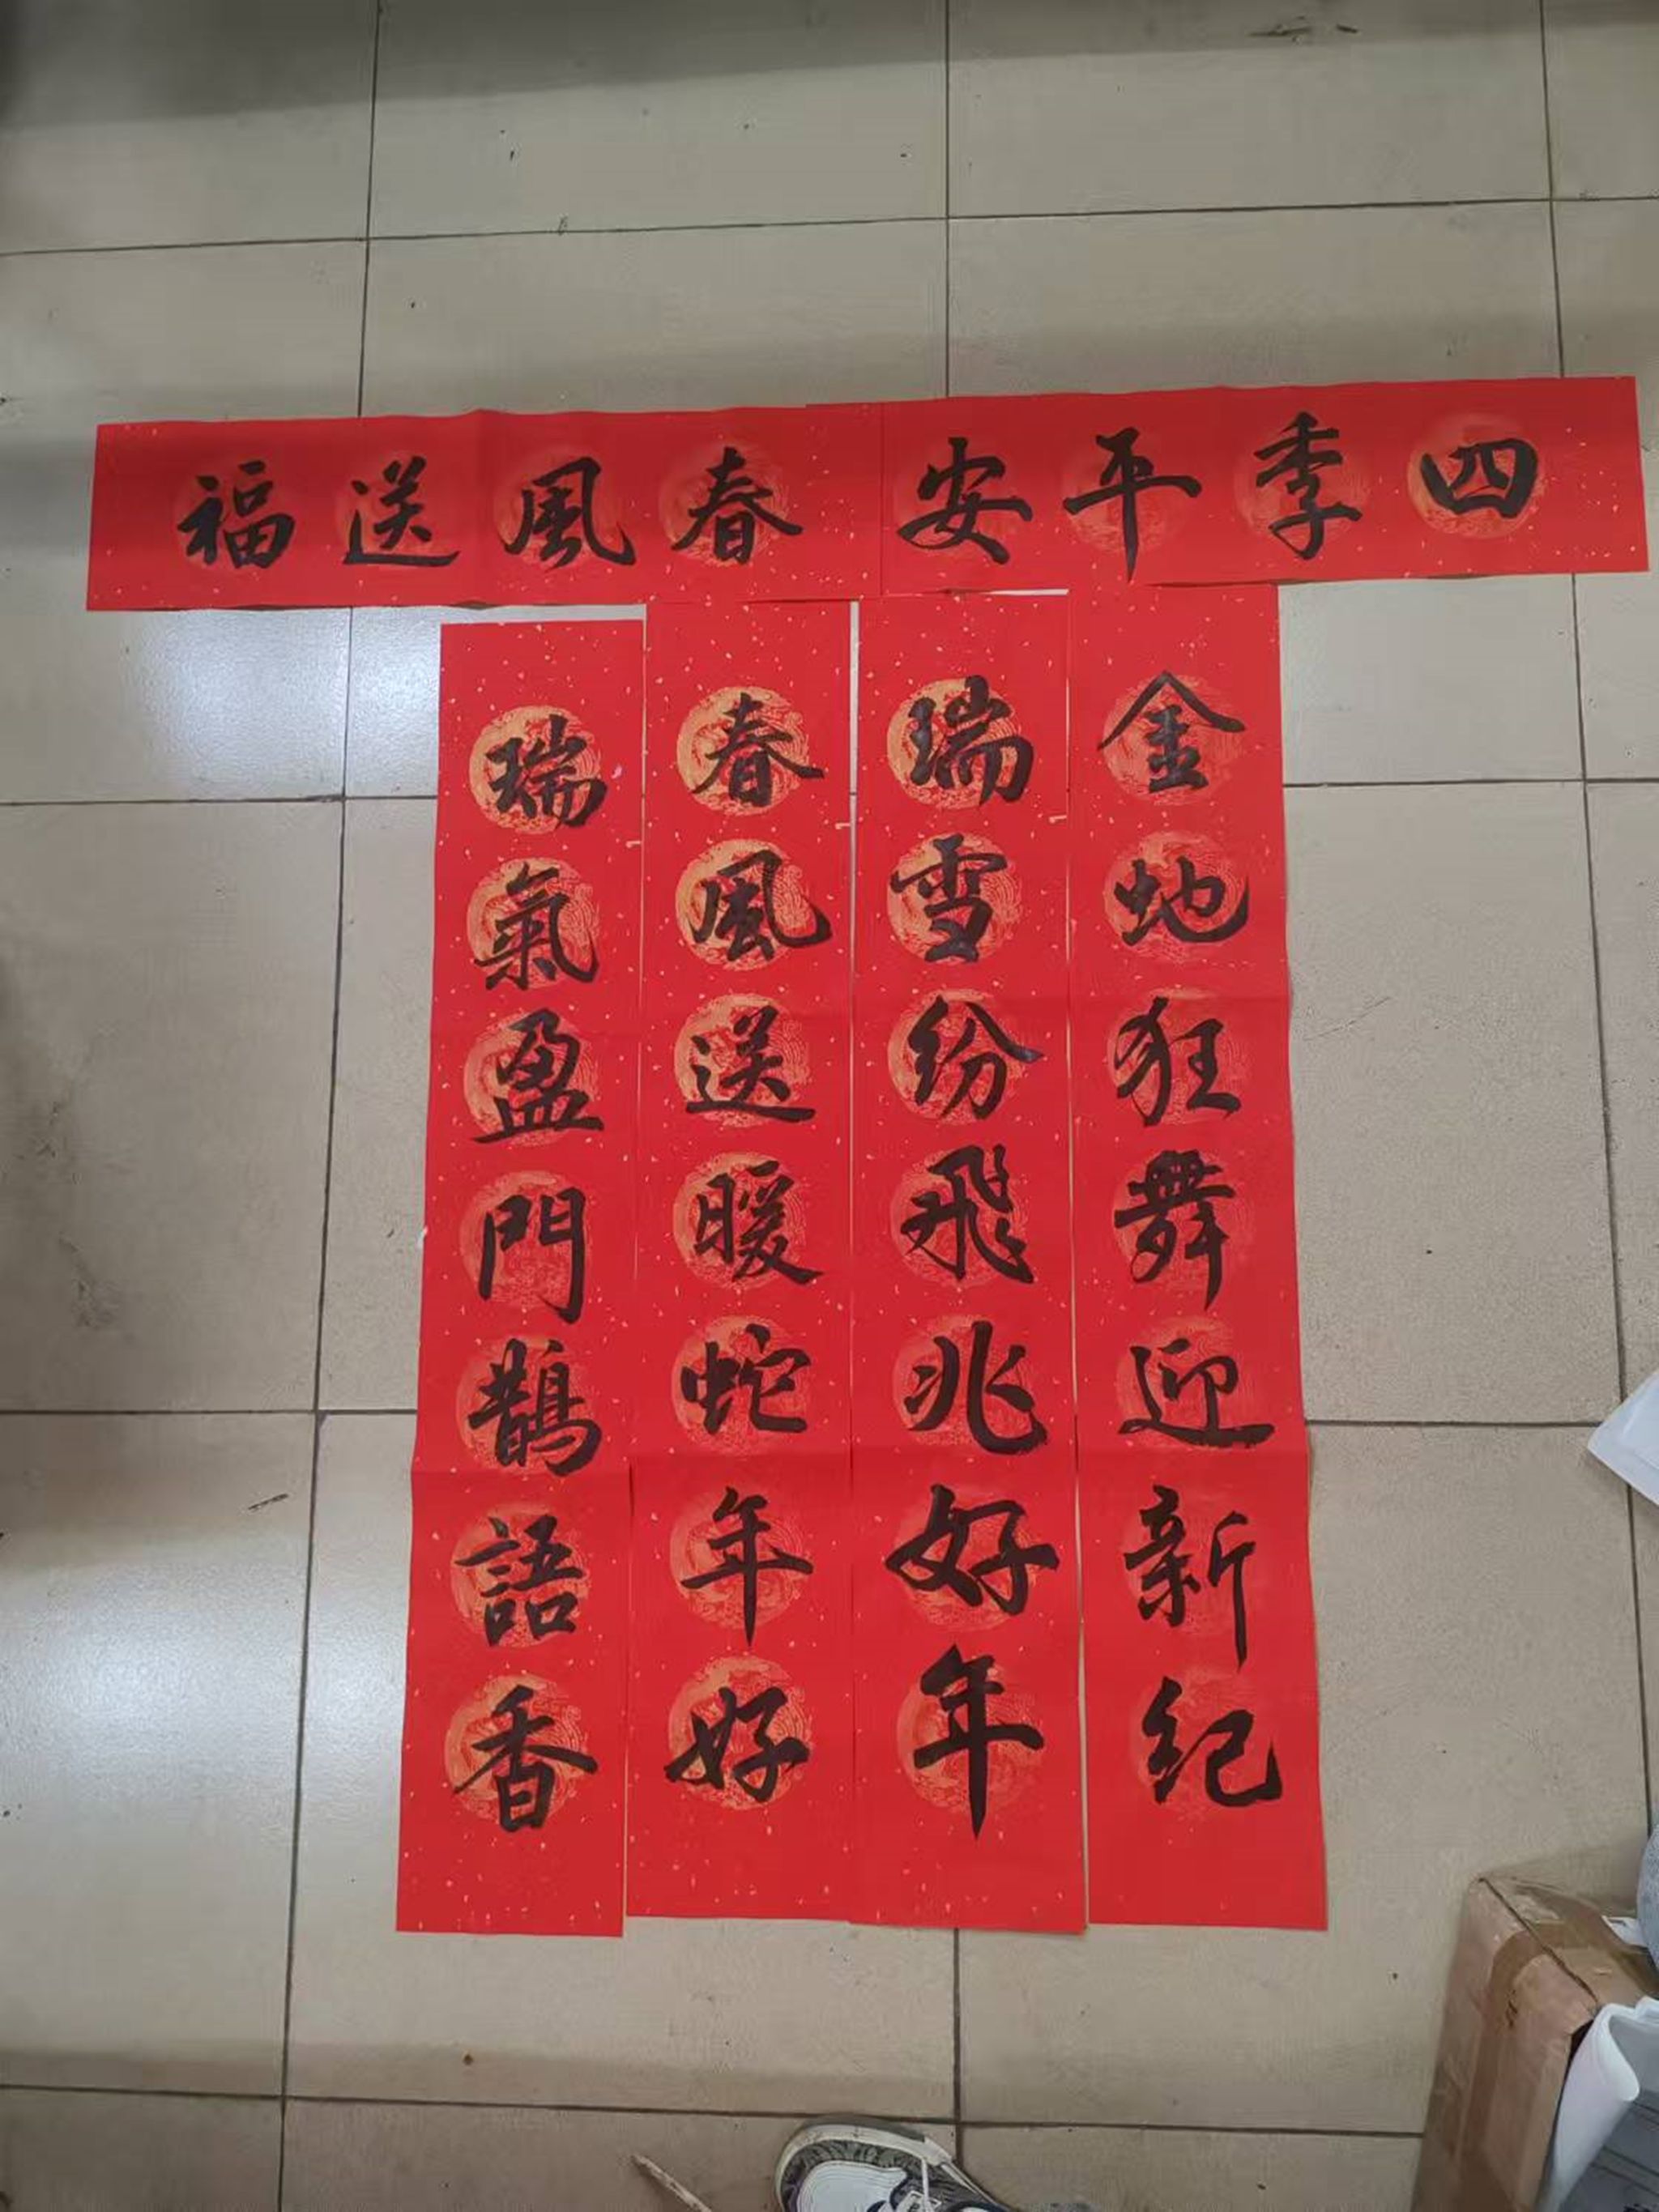 四季平安
春風送福
金虵狂舞迎新纪
瑞雪纷飛兆好年
春風送暖蛇年好
瑞氣盈門鵲語香